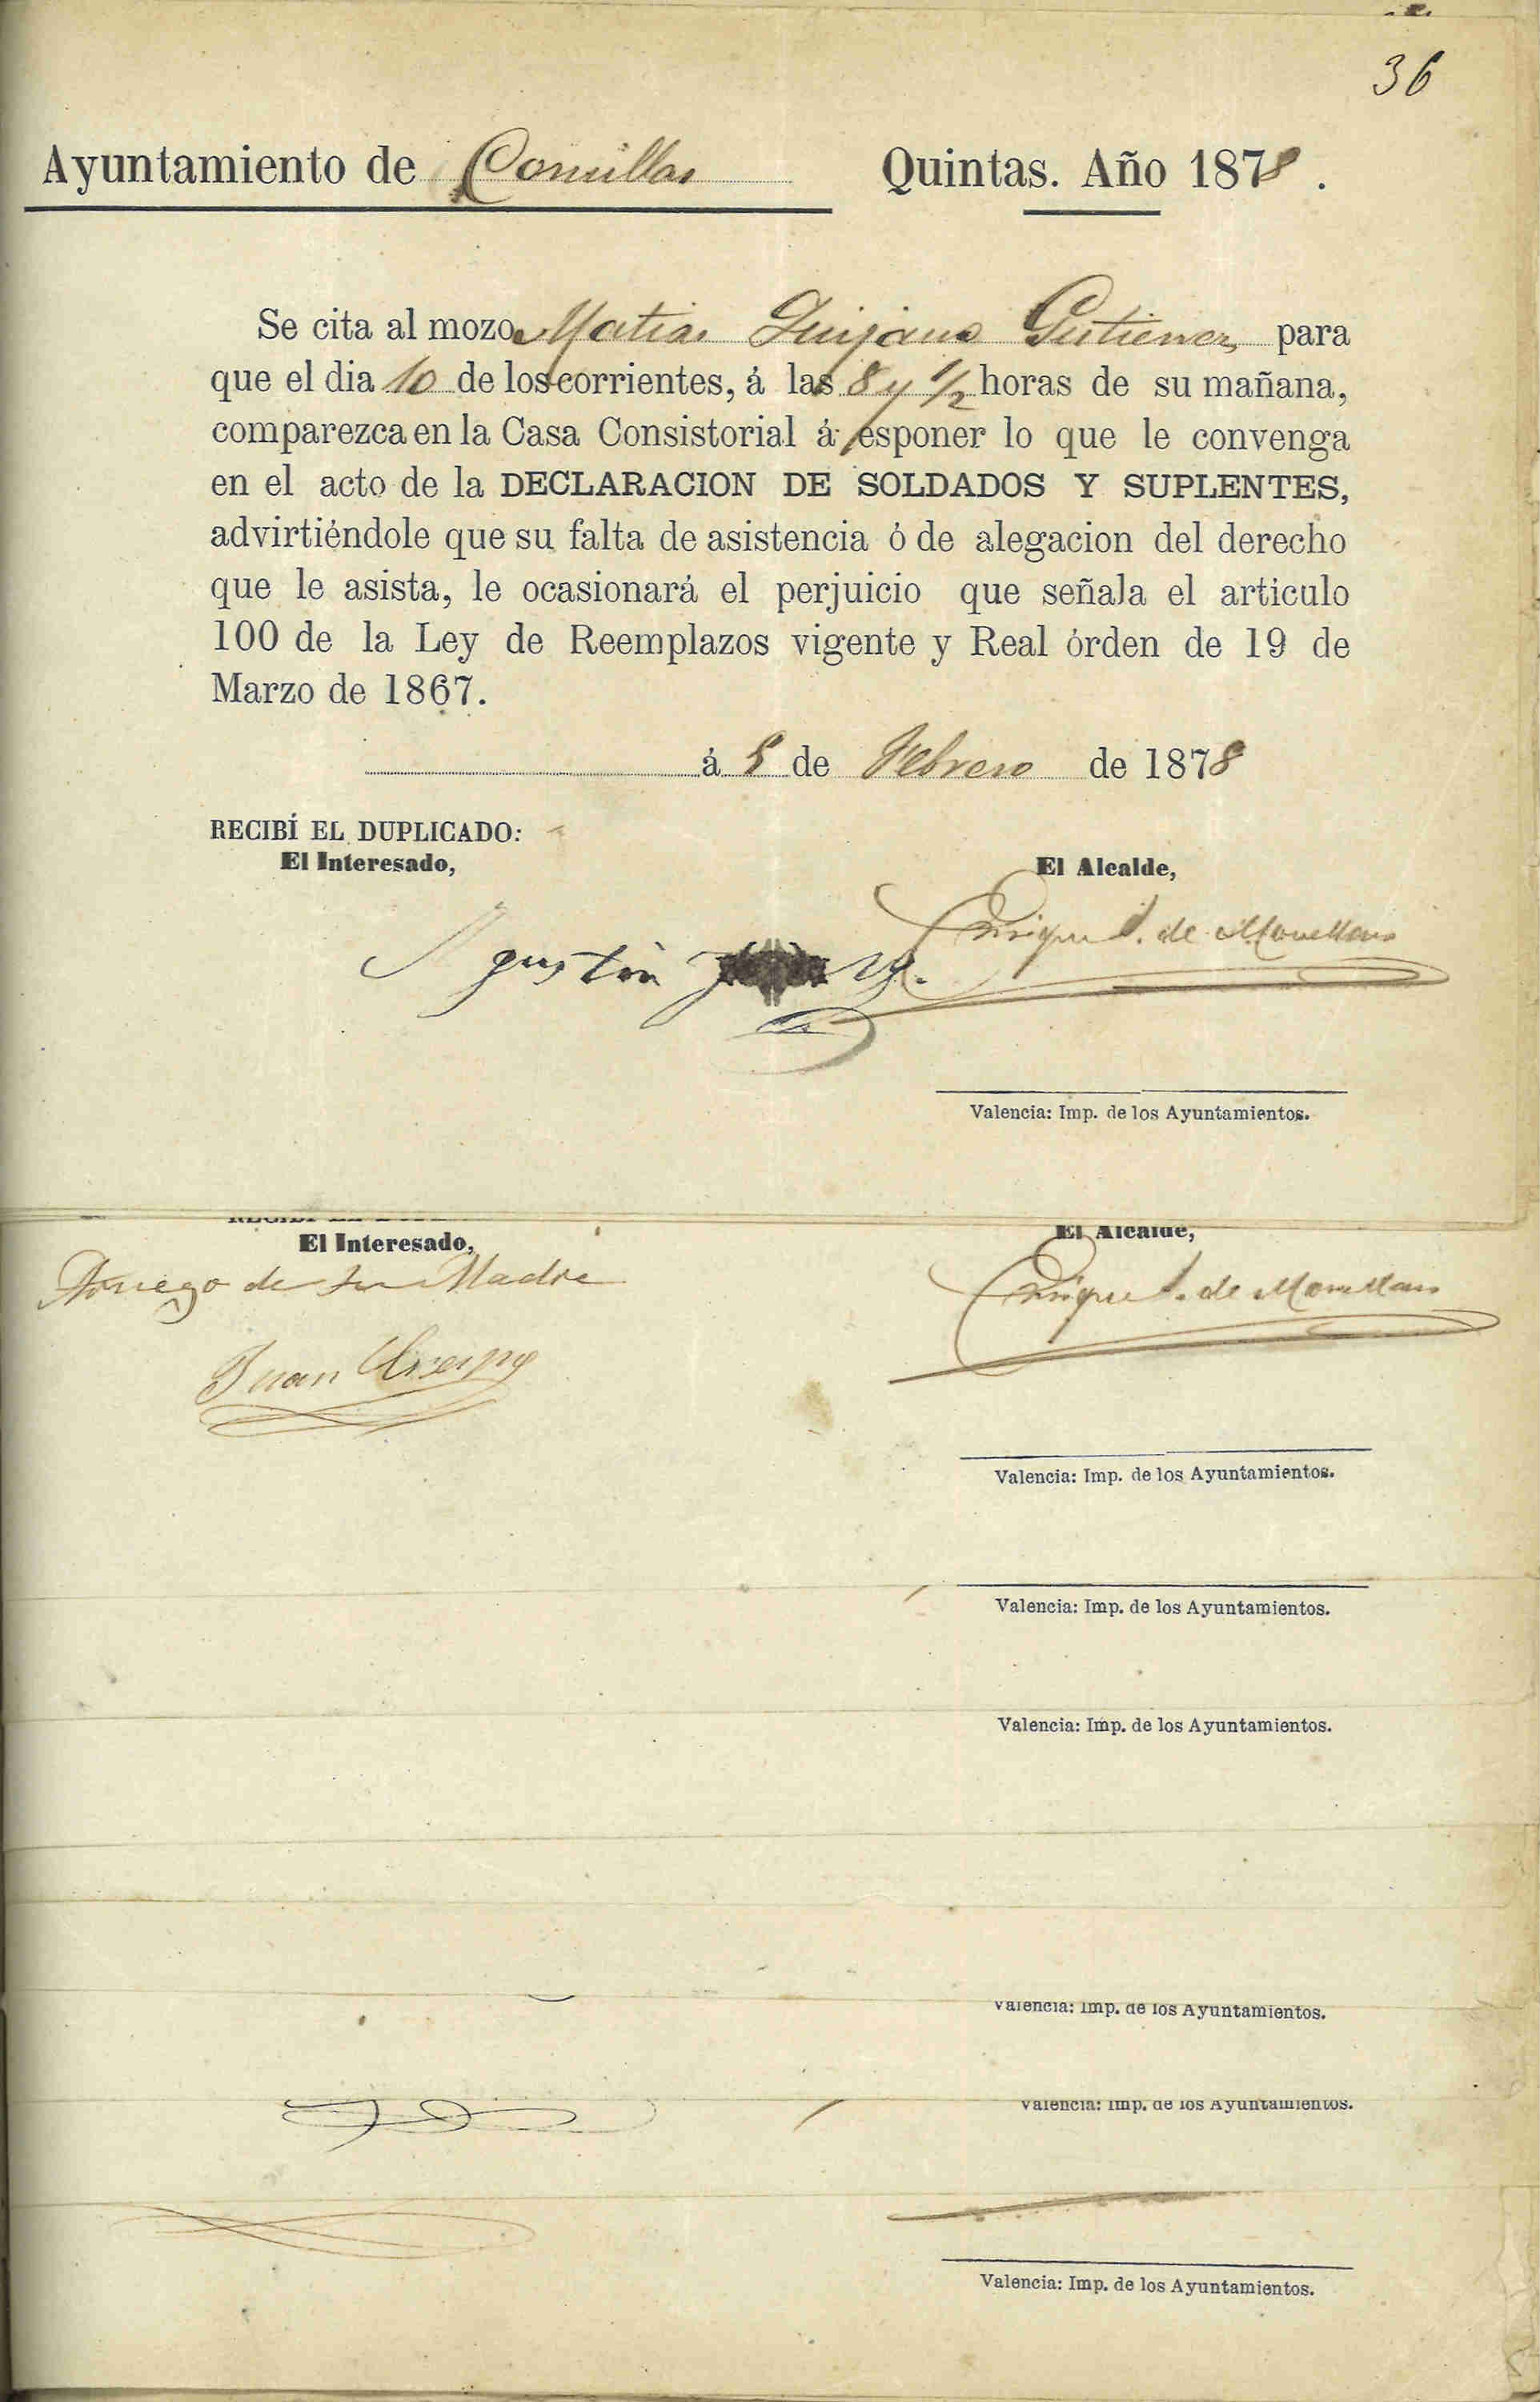 36
Ayuntamiento de Comillas Quintas. Año 1878.
Se cita al mozo Matias Quijano Gutierrez para
que el dia 10 de los corrientes, á las 8 y 1/2 horas de su mañana,
comparezca en la Casa Consistorial á esponer lo que le convenga
en el acto de la DECLARACION DE SOLDADOS Y SUPLENTES,
advirtiéndole que su falta de asistencia ó de alegacion del derecho
que le asista, le ocasionará el perjuicio que señala el articulo
100 de la Ley de Reemplazos vigente y Real órden de 19 de
Marzo de 1867.
á 8 de Febrero de 1878
RECIBÍ EL DUPLICADO:
El Interesado,
El Alcalde,
Agustin
Enrique de Movellan
Valencia: Imp. de los Ayuntamientos.
El Interesado,
El Alcalde,
A ruego de su Madre
Enrique de Movellan
Juan
Valencia: Imp. de los Ayuntamientos.
Valencia: Imp. de los Ayuntamientos.
Valencia: Imp. de los Ayuntamientos.
Valencia: Imp. de los Ayuntamientos.
Valencia: Imp. de los Ayuntamientos.
Valencia: Imp. de los Ayuntamientos.